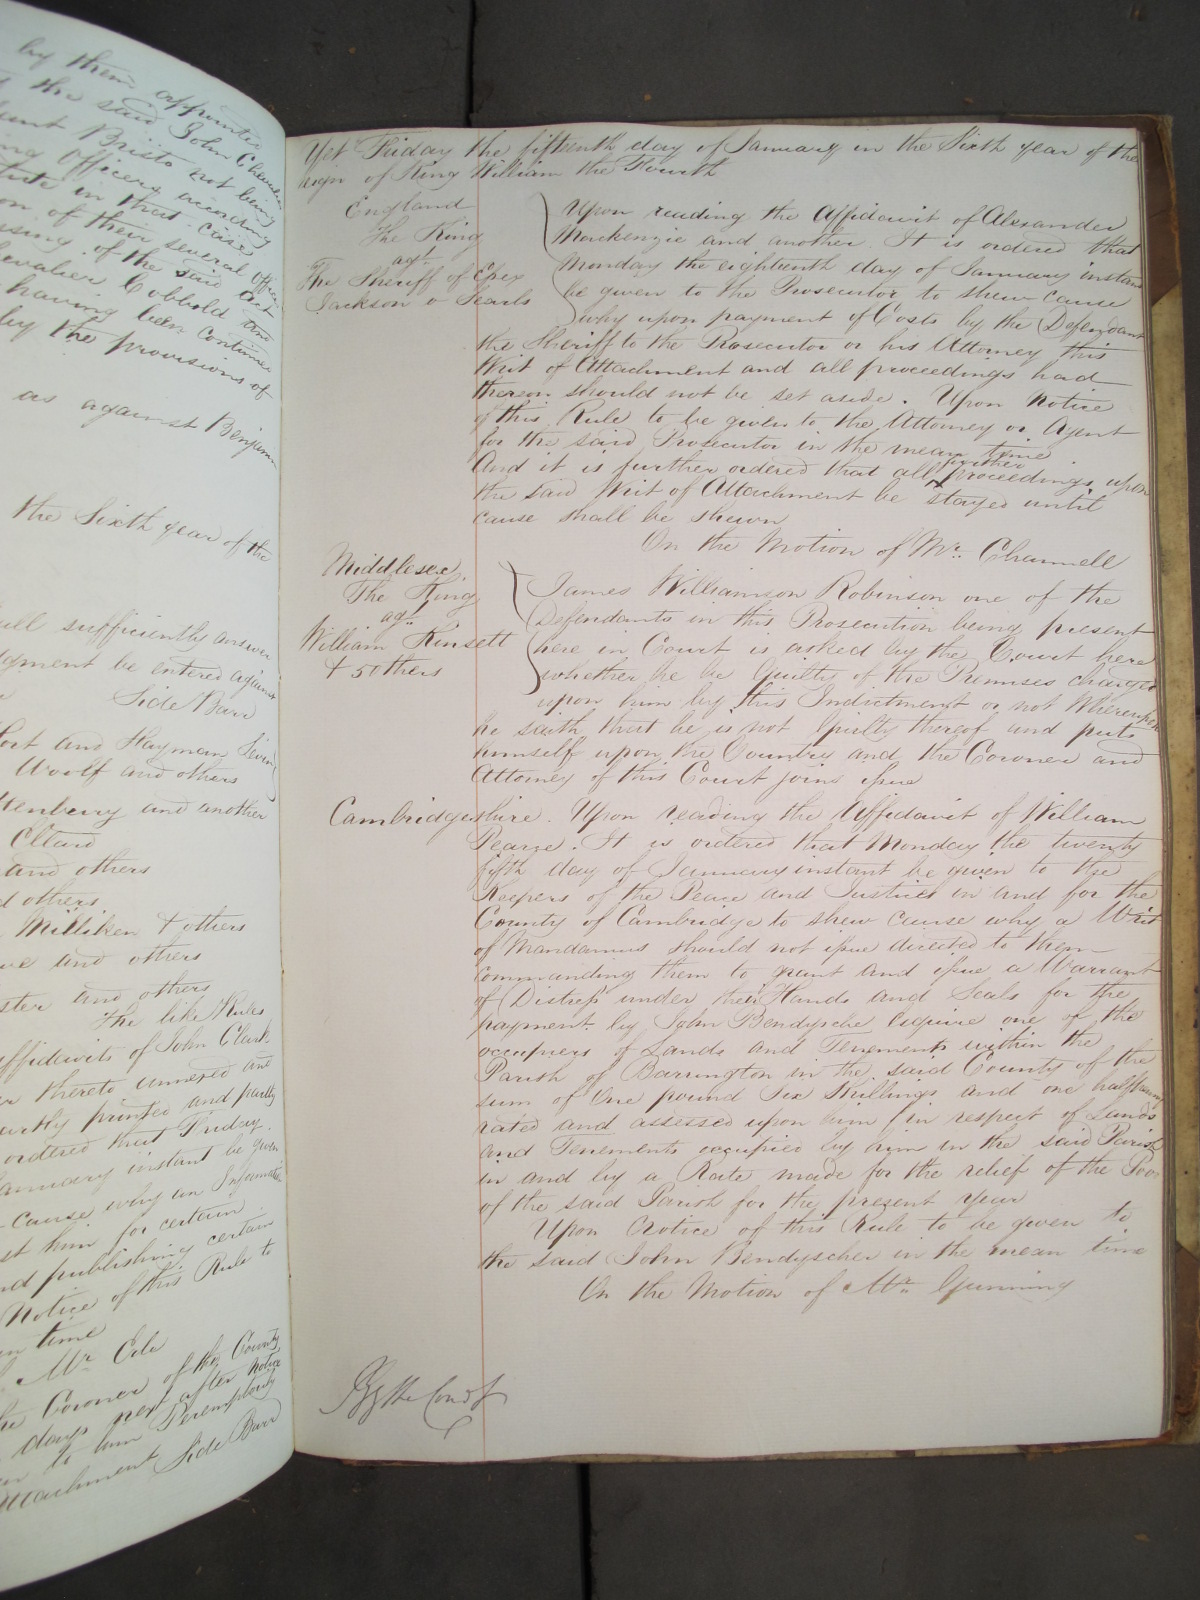 by them appointed
the said John Chevalier
Bristo not being
Officers according
in that case
on of their several Offices
ssing of the said Act
evalier Cobbold and
having been continued
by the provisions of
as against Benjamin
the Sixth year of the
sufficiently answer
dgment be entered against
Side Barr
and Hayman Seven
Woolf and others
and another
Ellard
and others
d others
Milliken & others
and others
ster and others
The like Rules
affidavits of John Clark
thereto annexed and
partly printed and partly
ordered that Friday
January instant be given
cause why an Information
st him for certain
nd publishing certain
Notice of this Rule to
n time
Mr Erle
the Coroner of the County
days next after notice
to him Peremptorily
Attachment Side Barr
Yet Friday the fifteenth day of January in the Sixth year of the
reign of King William the Fourth
England
The King
agt
The Sheriff of Essex
Jackson v Searls
Upon reading the Affidavit of Alexander
Mackenzie and another. It is ordered that
Monday the eighteenth day of January instant
be given to the Prosecutor to shew cause
why upon payment of Costs by the Defendant
the Sheriff to the Prosecutor or his Attorney this
Writ of Attachment and all proceedings had
thereon should not be set aside. Upon Notice
of this Rule to be given to the Attorney or Agent
for the said Prosecutor in the mean time
And it is further ordered that all further proceedings upon
the said Writ of Attachment be stayed until
cause shall be shewn
On the Motion of Mr. Channell
Middlesex
The King
agt
William Kinsett
& 5 Others
James Williamson Robinson one of the
Defendants in this Prosecution being present
here in Court is asked by the Court here
whether he be Guilty of the Premises charged
upon him by this Indictment or not Whereupon
he saith that he is not Guilty thereof and puts
himself upon the Country and the Coroner and
Attorney of this Court joins issue
Cambridgeshire. Upon reading the Affidavit of William
Pearse. It is ordered that Monday the twenty
fifth day of January instant be given to the
Keepers of the Peace and Justices in and for the
County of Cambridge to shew cause why a Writ
of Mandamus should not issue directed to them
commanding them to grant and issue a Warrant
of Distress under their Hands and Seals for the
payment by John Bendysche Esquire one of the
occupiers of Lands and Tenements within the
Parish of Barrington in the said County of the
sum of One pound Six Shillings and one halfpenny
rated and assessed upon him in respect of Lands
and Tenements occupied by him in the said Parish
in and by a Rate made for the relief of the Poor
of the said Parish for the present year
Upon Notice of this Rule to be given to
the said John Bendysche in the mean time
On the Motion of Mr. Gunning
By the Court